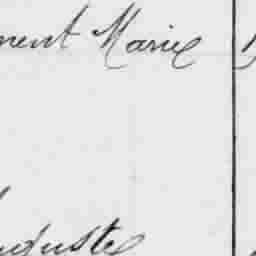 ment Marie
uguste